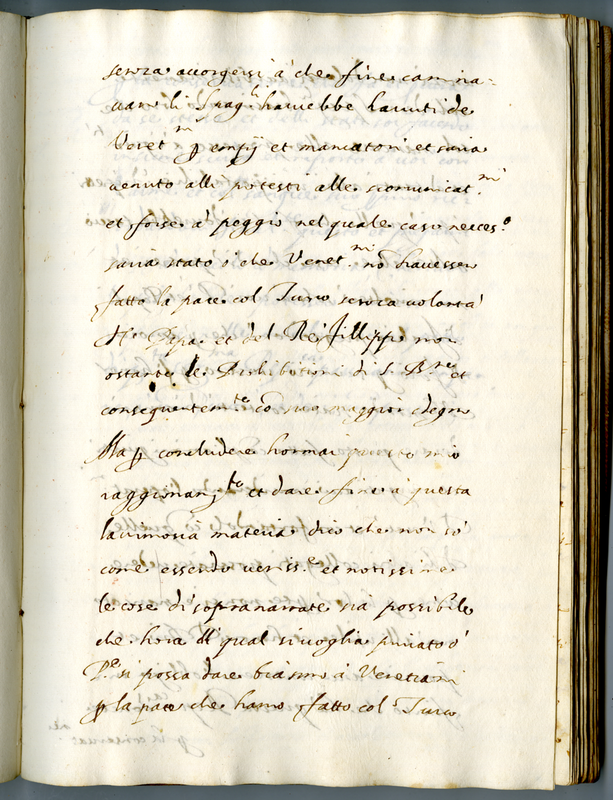 senza accorgersi à che fine camina-
van li Spag.li havrebbe havuti de
Venet.mi p empij et mancatori et saria
venuto alli protesti alle scomunicat.ni
et forse à peggio nel quale caso neces.o
saria stato ò che Venet.ni nō havessero
fatto la pace col Turco senza volontà
del Papa et del Rè Fillippo non
ostante le Prohibitioni di S. B.ne et
conseguentem.te cō suo maggior sdegno
Ma p concludere hormai questo mio
raggionam.to et dare fine à questa
lacrimosa materia dico che non sò
come essendo veriss.e et notissime
le cose di sopra narrate sia possibile
che hora dà qual si voglia privato ò
P.e si possa dare biasmo à Venetiani
p la pace che hanno fatto col Turco